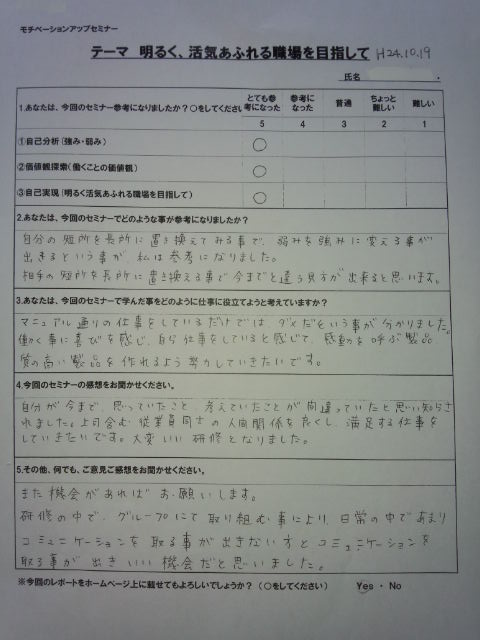 モチベーションアップセミナー
テーマ 明るく、活気あふれる職場を目指して H24.10.19
氏名
1.あなたは、今回のセミナー参考になりましたか?〇をしてください とても参考になった 参考になった 普通 ちょっと難しい 難しい
5 4 3 2 1
①自己分析(強み・弱み) 〇
②価値観探索(働くことの価値観) 〇
③自己実現(明るく活気あふれる職場を目指して) 〇
2.あなたは、今回のセミナーでどのような事が参考になりましたか?
自分の短所を長所に置き換えてみる事で、弱みを強みに変える事が
出来るという事が、私は参考になりました。
相手の短所を長所に置き換える事で今までと違う見方が出来ると思います。
3.あなたは、今回のセミナーで学んだ事をどのように仕事に役立てようと考えていますか?
マニュアル通りの仕事をしているだけでは、ダメだという事が分かりました。
働く事に喜びを感じ、自ら仕事をしていると感じて、感動を呼ぶ製品
質の高い製品を作れるよう努力していきたいです。
4.今回のセミナーの感想をお聞かせください。
自分が今まで、思っていたこと、考えていたことが間違っていたと思い知らさ
れました。上司含む従業員同士の人間関係を良くし、満足する仕事を
していきたいです。大変いい研修となりました。
5.その他、何でも、ご意見ご感想をお聞かせください。
また機会があればお願いします。
研修の中で、グループにて取り組む事により、日常の中であまり
コミュニケーションを取る事が出きない方とコミュニケーションを
取る事が出きいい機会だと思いました。
※今回のレポートをホームページ上に載せてもよろしいでしょうか?(〇をしてください) Yes ・ No